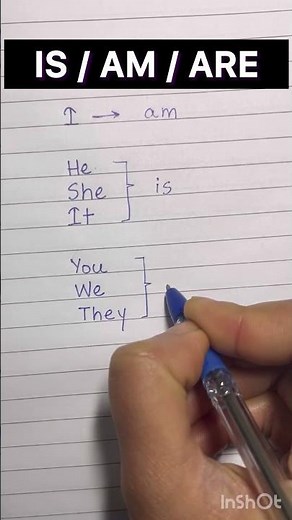 IS / AM / ARE
I → am
He
She
It
is
You
We
They
InShOt